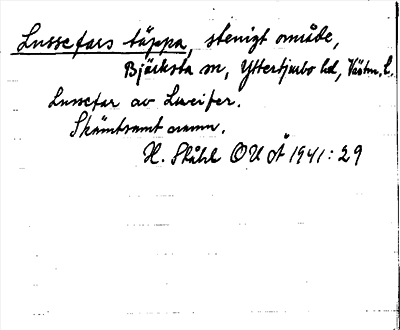 Lussefars täppa, stenigt område,
Bjärksta sn, Yttertjurbo hd, Västm. l.
Lussefar av Lucifer.
Skämtsamt namn.
H. Ståhl OUÅ 1941: 29